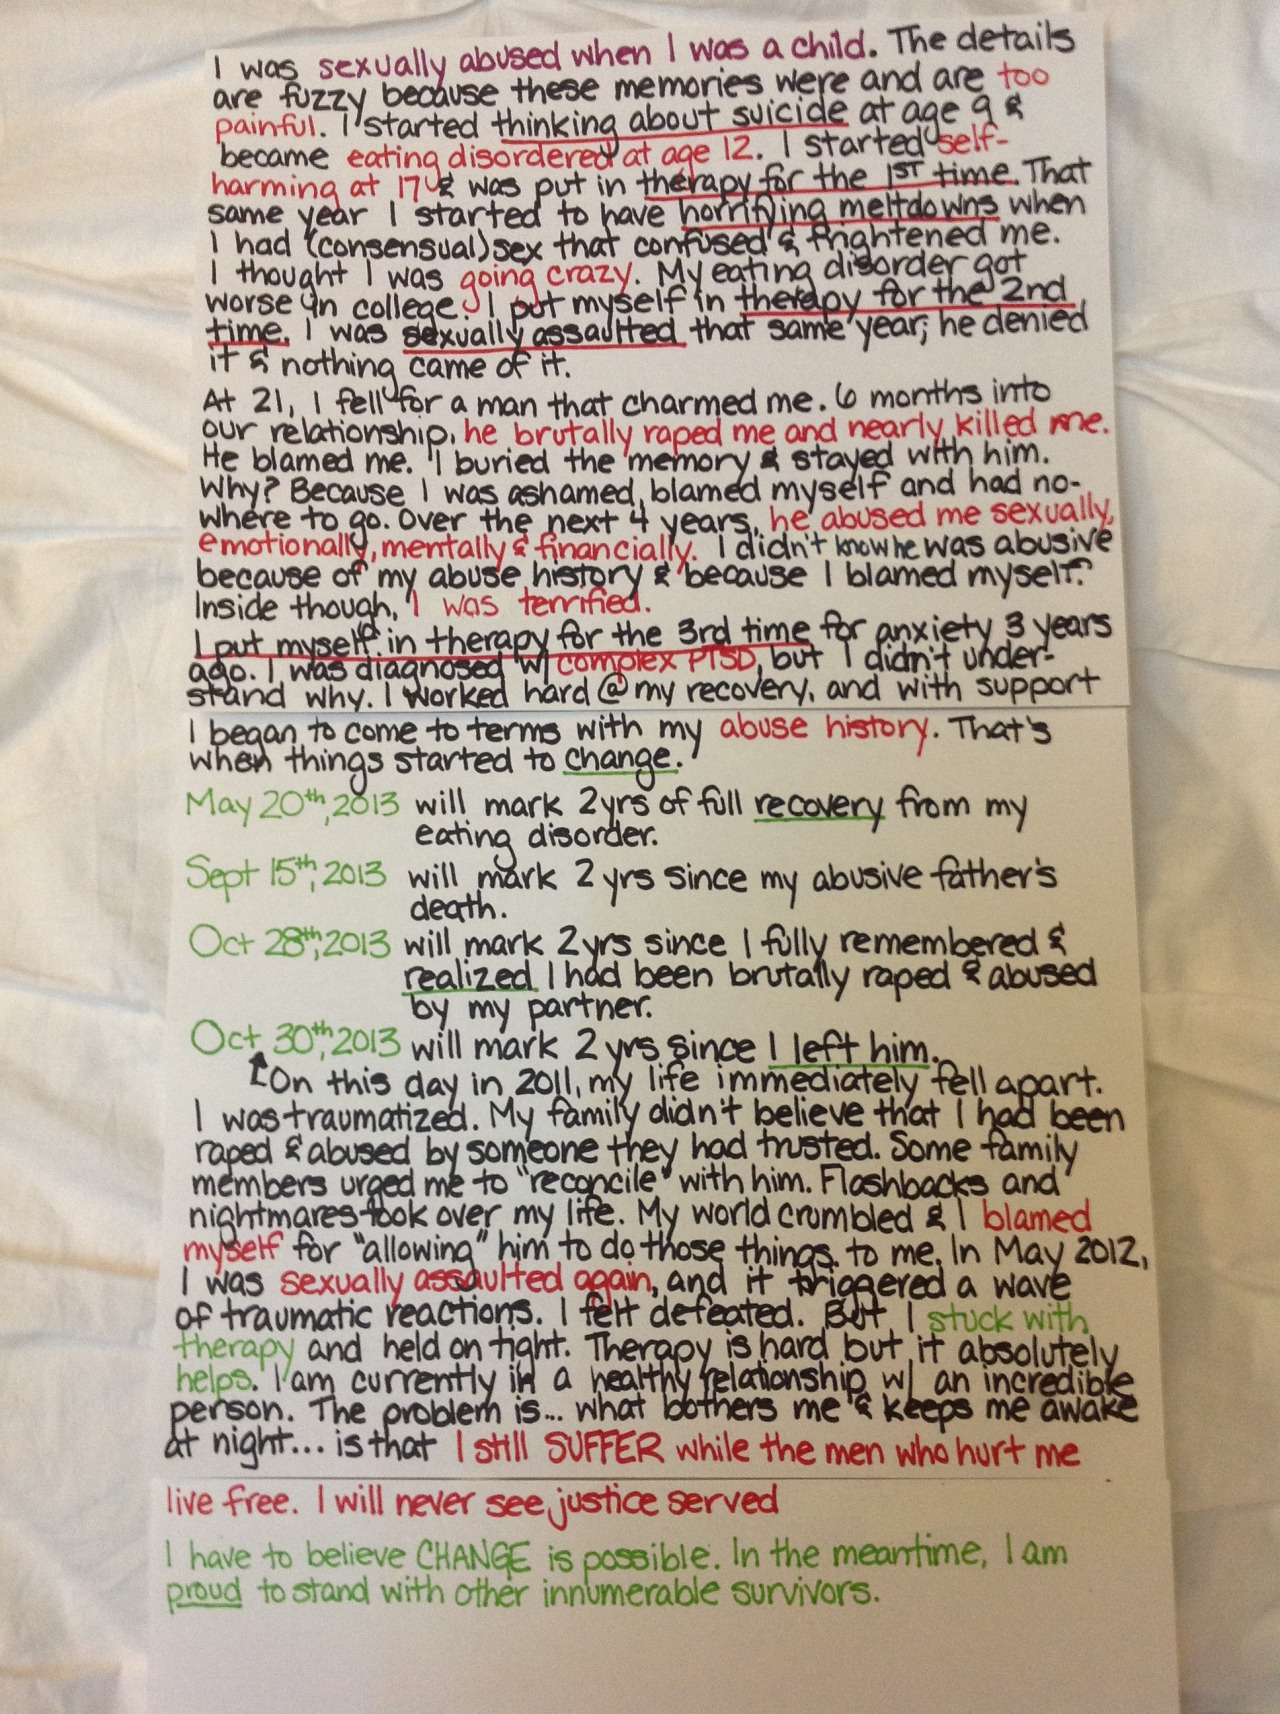 I was sexually abused when I was a child. The details
are fuzzy because these memories were and are too
painful. I started thinking about suicide at age 9 &
became eating disordered at age 12. I started self-
harming at 17 & was put in therapy for the 1ST time. That
same year I started to have horrifying meltdowns when
I had (consensual) sex that confused & frightened me.
I thought I was going crazy. My eating disorder got
worse in college. I put myself in therapy for the 2nd
time. I was sexually assaulted that same year; he denied
it & nothing came of it.
At 21, I fell for a man that charmed me. 6 months into
our relationship, he brutally raped me and nearly killed me.
He blamed me. I buried the memory & stayed with him.
Why? Because I was ashamed, blamed myself and had no-
where to go. Over the next 4 years, he abused me sexually,
emotionally, mentally & financially. I didn't know he was abusive
because of my abuse history & because I blamed myself.
Inside though, I was terrified.
I put myself in therapy for the 3rd time for anxiety 3 years
ago. I was diagnosed w/ complex PTSD, but I didn't under-
stand why. I worked hard @ my recovery, and with support
I began to come to terms with my abuse history. That's
when things started to change.
May 20th, 2013 will mark 2yrs of full recovery from my
eating disorder.
Sept 15th, 2013 will mark 2 yrs since my abusive father's
death.
Oct 28th, 2013 will mark 2yrs since I fully remembered &
realized I had been brutally raped & abused
by my partner.
Oct 30th, 2013 will mark 2 yrs since I left him.
On this day in 2011, my life immediately fell apart.
I was traumatized. My family didn't believe that I had been
raped & abused by someone they had trusted. Some family
members urged me to "reconcile" with him. Flashbacks and
nightmares took over my life. My world crumbled & I blamed
myself for "allowing" him to do those things to me. In May 2012,
I was sexually assaulted again, and it triggered a wave
of traumatic reactions. I felt defeated. But I stuck with
therapy and held on tight. Therapy is hard but it absolutely
helps. I am currently in a healthy relationship w/ an incredible
person. The problem is... what bothers me & keeps me awake
at night... is that I still SUFFER while the men who hurt me
live free. I will never see justice served
I have to believe CHANGE is possible. In the meantime, I am
proud to stand with other innumerable survivors.